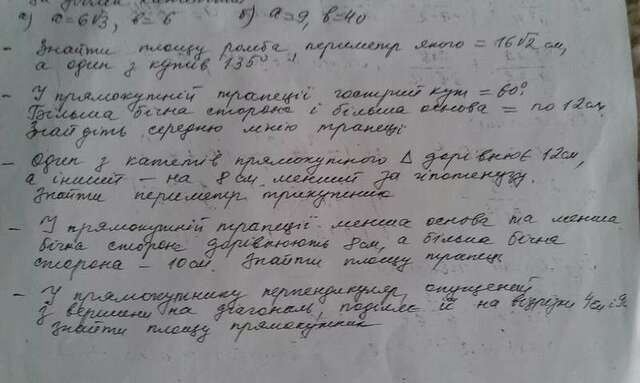 а) a=6√3, b=6 б) a=9, b=40
- Знайти площу ромба, периметр якого = 16√2 см,
а один з кутів 135°
- У прямокутній трапеції гострий кут = 60°.
Більша бічна сторона і більша основа = по 12см
Знайдіть середню лінію трапеції
- Один з катетів прямокутного Δ дорівнює 12см,
а інший - на 8см менший за гіпотенузу.
Знайти периметр трикутника
- У прямокутній трапеції менша основа та менша
бічна сторона дорівнюють 8см, а більша бічна
сторона - 10см. Знайти площу трапец
- У прямокутнику перпендикуляр, опущений
з вершини на діагональ, поділяє її на відрізки 4см і 9
Знайти площу прямокутник